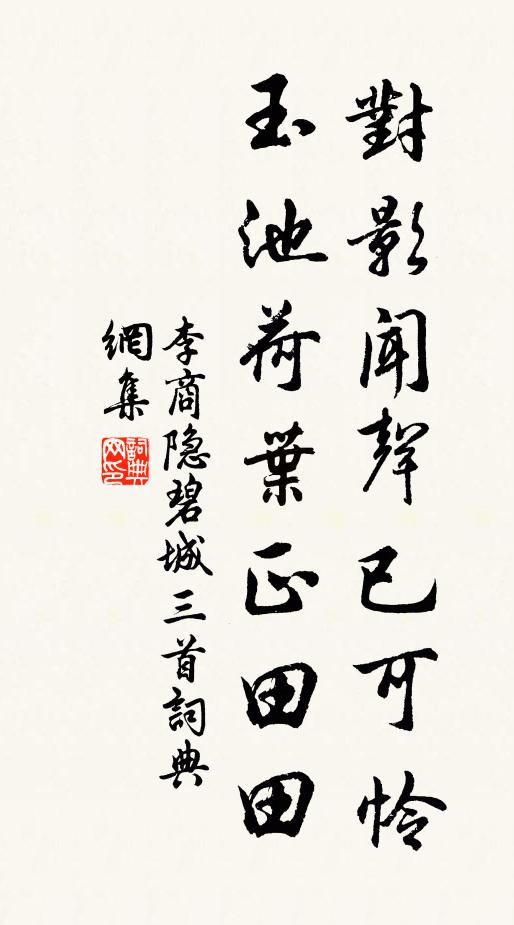 對影聞聲已可憐
玉池荷葉正田田
李商隐碧城三首詞典
網集
詞典
网印